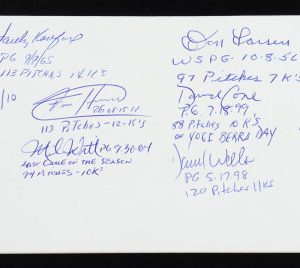 Sandy Koufax
PG 9/9/65
113 PITCHES 14 K's
/10
PG 6.13.12
113 PITCHES - 12-15's
Mike Witt PG 9.30.84
LAST GAME OF THE SEASON
94 PITCHES - 10K's
Don Larsen
WSPG. 10.8.56
97 Pitches 7K's
David Cone
PG 7.18.99
88 Pitches 10 K's
on YOGI BERRA DAY
David Wells
PG 5.17.98
120 Pitches 11Ks